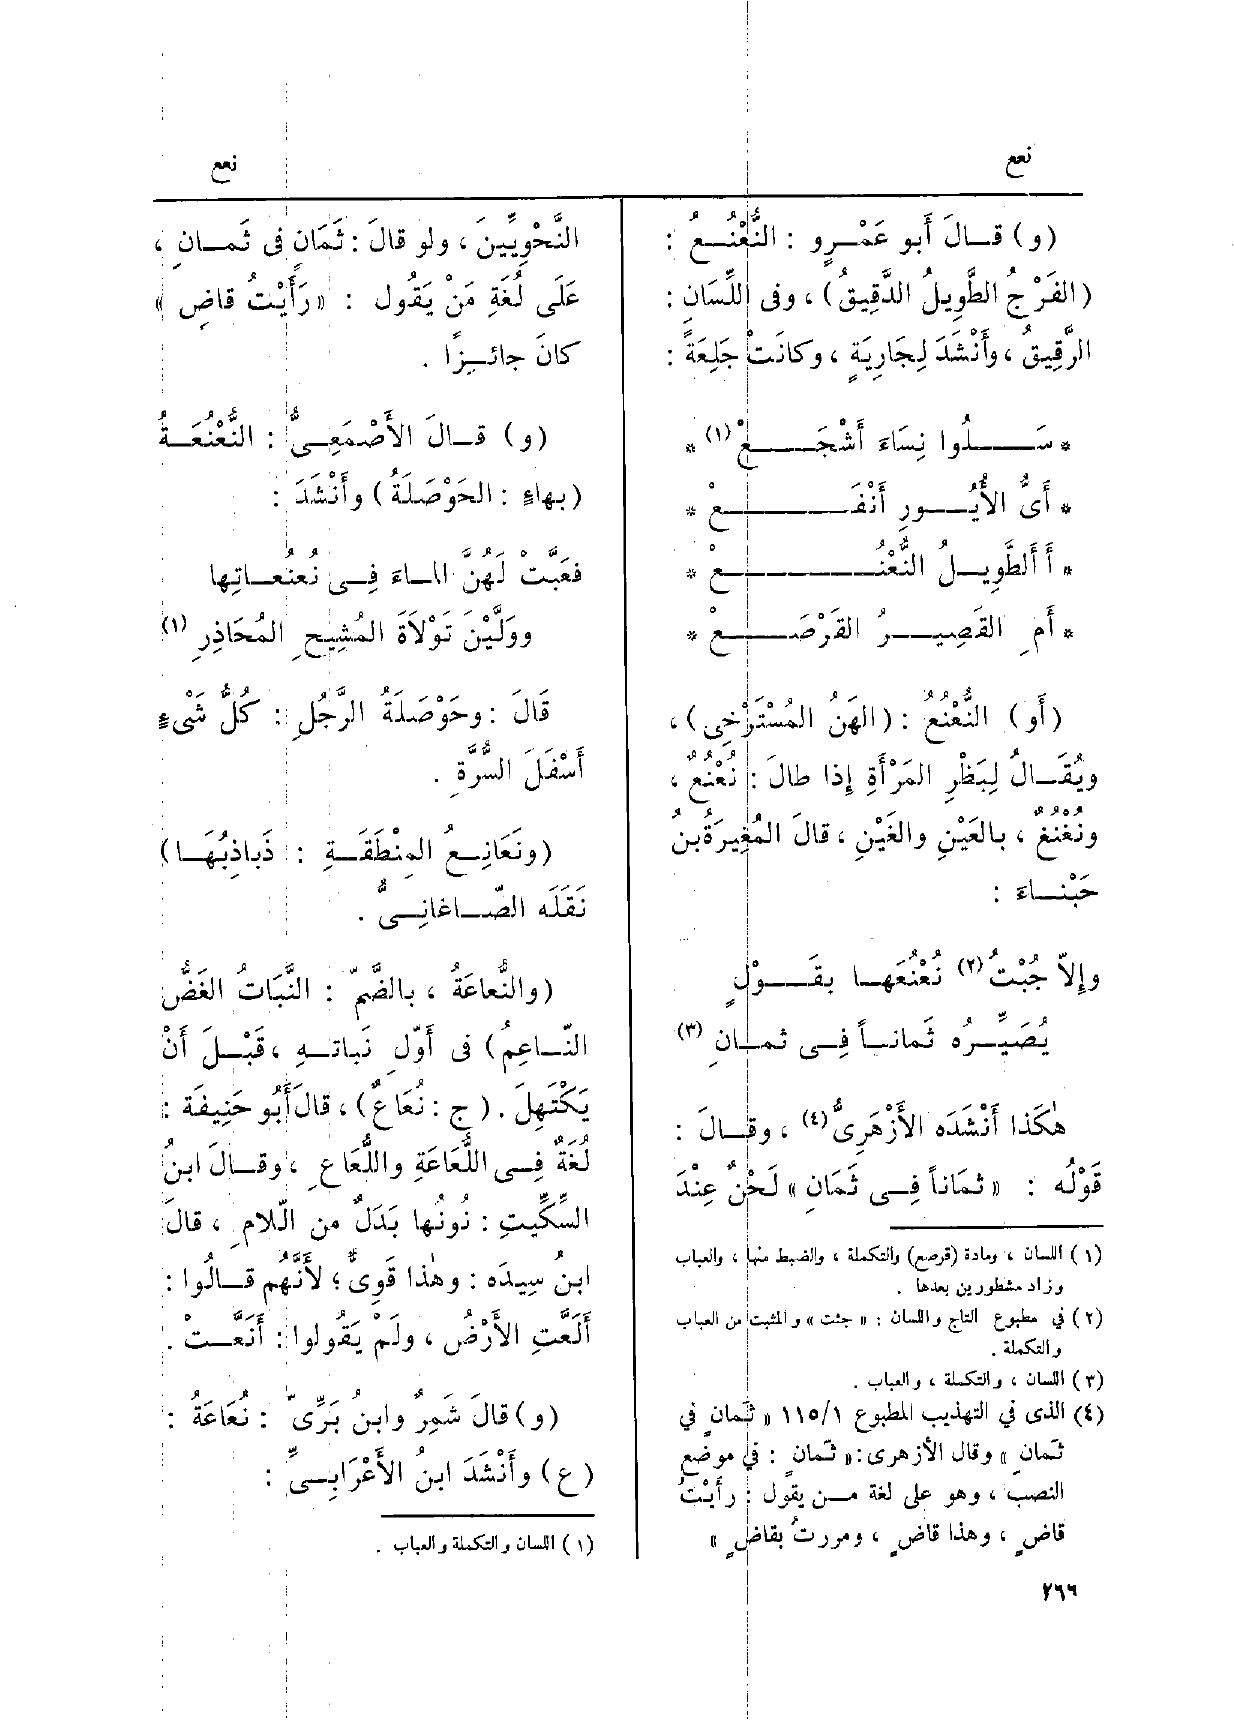 نعع
نعع
(و) قــالَ أَبو عَمْـرٍو : النُّعْنُــعُ :
(الفَرْجُ الطَّوِيلُ الدَّقِيقُ) ، وفى اللِّسَانِ :
الرَّقِيقُ ، وأَنْشَدَ لِجَارِيَةٍ ، وكانَتْ جَلِعَةً :
* سَــــلُوا نِسَاءَ أَشْجَــــعْ (١) *
* أَىُّ الأُيُــورِ أَنْفَــــــعْ *
* أَأَلطَّوِيــلُ النُّعْنُــــــعْ *
* أَمِ القَصِيــرُ القَرْصَــــعْ *
(أَو) النُّعْنُعُ : (الهَنُ المُسْتَرْخِى) ،
ويُقَــالُ لِبَظْرِ المَرْأَةِ إِذا طالَ : نُعْنُعٌ ،
ونُغْنُغٌ ، بالعَيْنِ والغَيْنِ ، قالَ المُغِيرَةُ بنُ
حَبْنــاءَ :
وإِلاّ جُبْتُ (٢) نُعْنُعَهــا بقَــوْلٍ
يُصَيِّــرُه ثَمانــاً فِــى ثمــانِ (٣)
هٰكَذا أَنْشَدَه الأَزْهَرِىُّ (٤) ، وقــالَ :
قَوْلُه : « ثَماناً فِــى ثَمَانِ » لَحْنٌ عِنْدَ
(١) اللسان ، ومادة (قرصع) والتكملة ، والضبط منها ، والعباب
وزاد مشطورين بعدها .
(٢) في مطبوع التاج واللسان : « جئت » والمثبت من العباب
والتكملة .
(٣) اللسان ، والتكملة ، والعباب .
(٤) الذى في التهذيب المطبوع ١١٥/١ « ثَمانٍ في
ثَمانِ » وقال الأزهرى : « ثَمانٍ : في موضع
النصب ، وهو على لغة مــن يقول : رأَيْتُ
قاضٍ ، وهذا قاضٍ ، ومررتُ بقاضٍ »
٢٦٦
النَّحْوِيِّينَ ، ولو قالَ : ثَمَانٍ فى ثَمــانِ ،
عَلَى لُغَةِ مَنْ يَقُول : « رَأَيْتُ قاضٍ »
كانَ جائــزًا .
(و) قــالَ الأَصْمَعِــىُّ : النُّعْنُعَــةُ
(بهاءٍ : الحَوْصَلَةُ) وأَنْشَدَ :
فعَبَّتْ لَهُنَّ المــاءَ فِــى نُعنُعــاتِها
ووَلَّيْنَ تَوْلَاةَ المُشِيحِ المُحَاذِرِ (١)
قَالَ : وحَوْصَلَةُ الرَّجُلِ : كُلُّ شَىْءٍ
أَسْفَلَ السُّرَّةِ .
(ونَعَانِــعُ المِنْطَقَــةِ : ذَباذِبُهَــا)
نَقَلَه الصّــاغانِــىُّ .
(والنُّعاعَةُ ، بالضَّمّ : النَّبَاتُ الغَضُّ
النّــاعِمُ) فى أَوَّلِ نَباتــهِ ، قَبْــلَ أَنْ
يَكْتَهِلَ . (ج : نُعَاعٌ) ، قالَ أَبُو حَنِيفَة :
لُغَةٌ فِــى اللُّعَاعَةِ واللُّعَاعِ ، وقــالَ ابنُ
السِّكِّيتِ : نُونُها بَدَلٌ من الّلامِ ، قالَ
ابنُ سِيدَه : وهٰذا قَوِىٌّ ؛ لأَنَّهُم قــالُوا :
أَلَعَّتِ الأَرْضُ ، ولَمْ يَقُولوا : أَنَعَّــتْ .
(و) قالَ شَمِرٌ وابنُ بَرِّىّ : نُعَاعَةُ :
(ع) وأَنْشَدَ ابنُ الأَعْرَابِــىِّ :
(١) اللسان والتكملة والعباب .